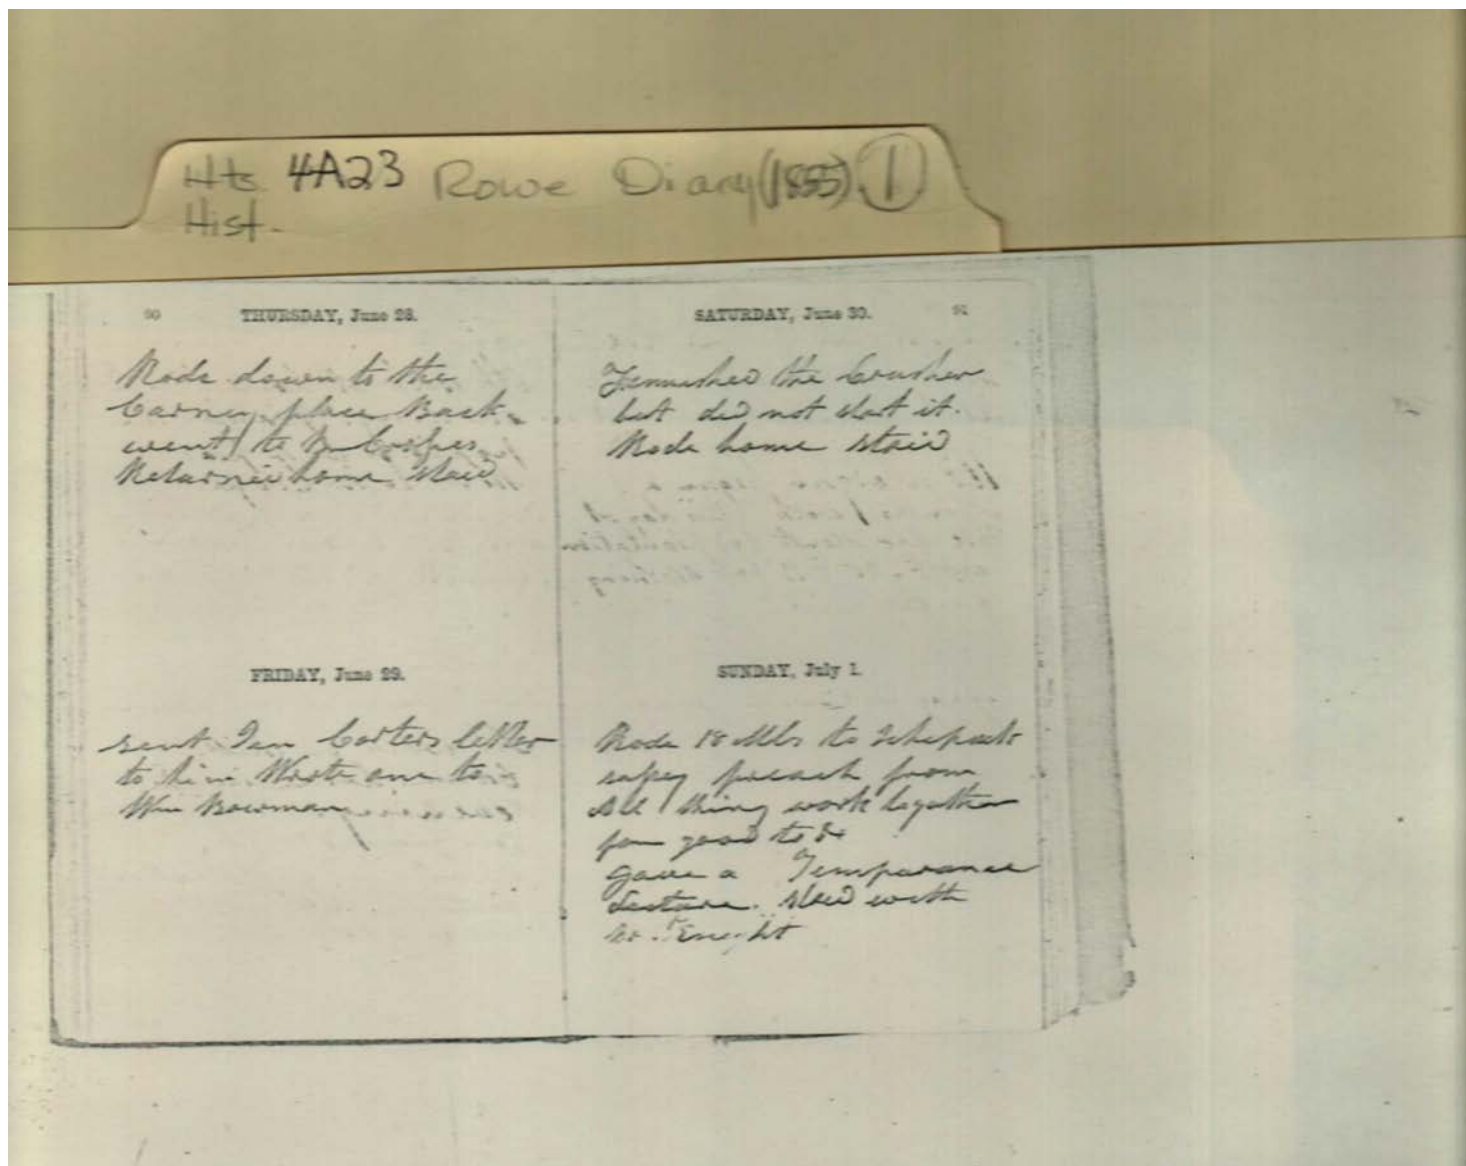 Hts. 4A23 Rowe Diary (1855) 1
Hist.
90 THURSDAY, June 28.
Rode down to the
Carney place Back
went to
Returned home staid
FRIDAY, June 29.
sent Carters letter
to him Wrote one to
Wm Bowman
SATURDAY, June 30. 91
Finnished the Crusher
but did not start it.
Rode home staid
SUNDAY, July 1.
Rode 18 Mls to
preach from
All thing work together
for good to &
Gave a Temperance
Lecture. staid with